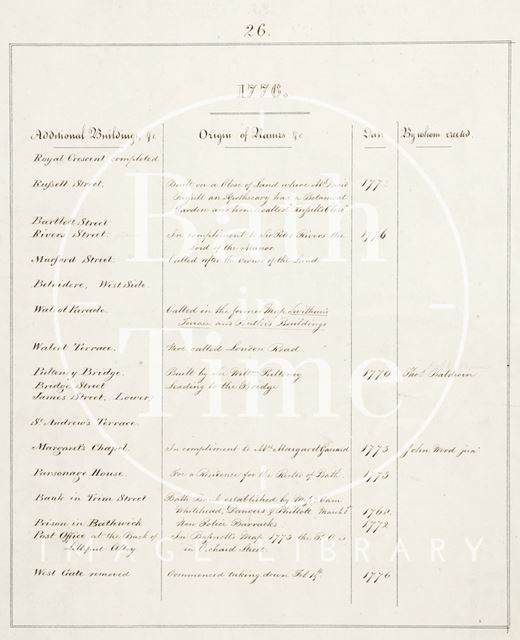 26.
1776.
Additional Buildings, &c Origin of Names &c Date By whom erected.
Royal Crescent completed
Russell Street. Built on a Close of Land where Mr. David 1775
Russell an Apothecary had a Botanical
Garden and home called Russells
Bartlett Street
Rivers Street. In compliment to Sir Peter Rivers the 1776
Lord of the Manor
Murford Street. Called after the owner of the Land
Belvidere, West Side.
Walcot Parade. Called in the former Map
Terrace and Butlers Buildings
Walcot Terrace. Now called London Road
Pulteney Bridge. Built by Sir Willm Pulteney 1770 Thos. Baldwin
Bridge Street Leading to the Bridge
James Street, Lower
St Andrew's Terrace.
Margaret's Chapel. In compliment to Mrs Margaret Garrard 1773 John Wood junr
Parsonage House. For a Residence for the Rector of Bath. 1773
Bank in Trim Street Bath Bank established by Cam
Whitehead, Danvers & Phillott March 1768
Prison in Bathwick Now Police Barracks 1772
Post Office at the Back of In Map 1773 the P.O. is
Lilliput Alley in Orchard Street.
West Gate removed Commenced taking down Feb 1776
Bath
in
Time
IMAGE LIBRARY